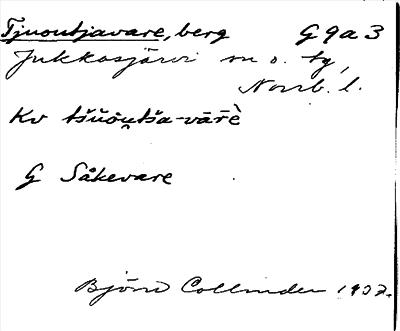 Tjuoutjavare, berg G9a3
Jukkasjärvi sn o. tg,
Norrb. l.
Kv tšŭo̯utša-vārè
G Såkevare
Björn Collinder 1932.